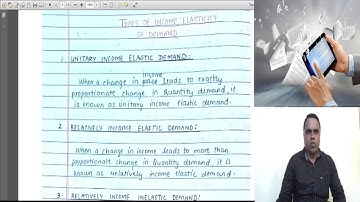 TYPES OF INCOME ELASTICITY
OF DEMAND
1. UNITARY INCOME ELASTIC DEMAND:
income
When a change in price leads to exactly
proportionate change in Quantity demand, it
is known as unitary income elastic demand.
2. RELATIVELY INCOME ELASTIC DEMAND:
When a change in income leads to more than
proportionate change in Quantity demand, it is
known as relatively income elastic demand.
3. RELATIVELY INCOME INELASTIC DEMAND: